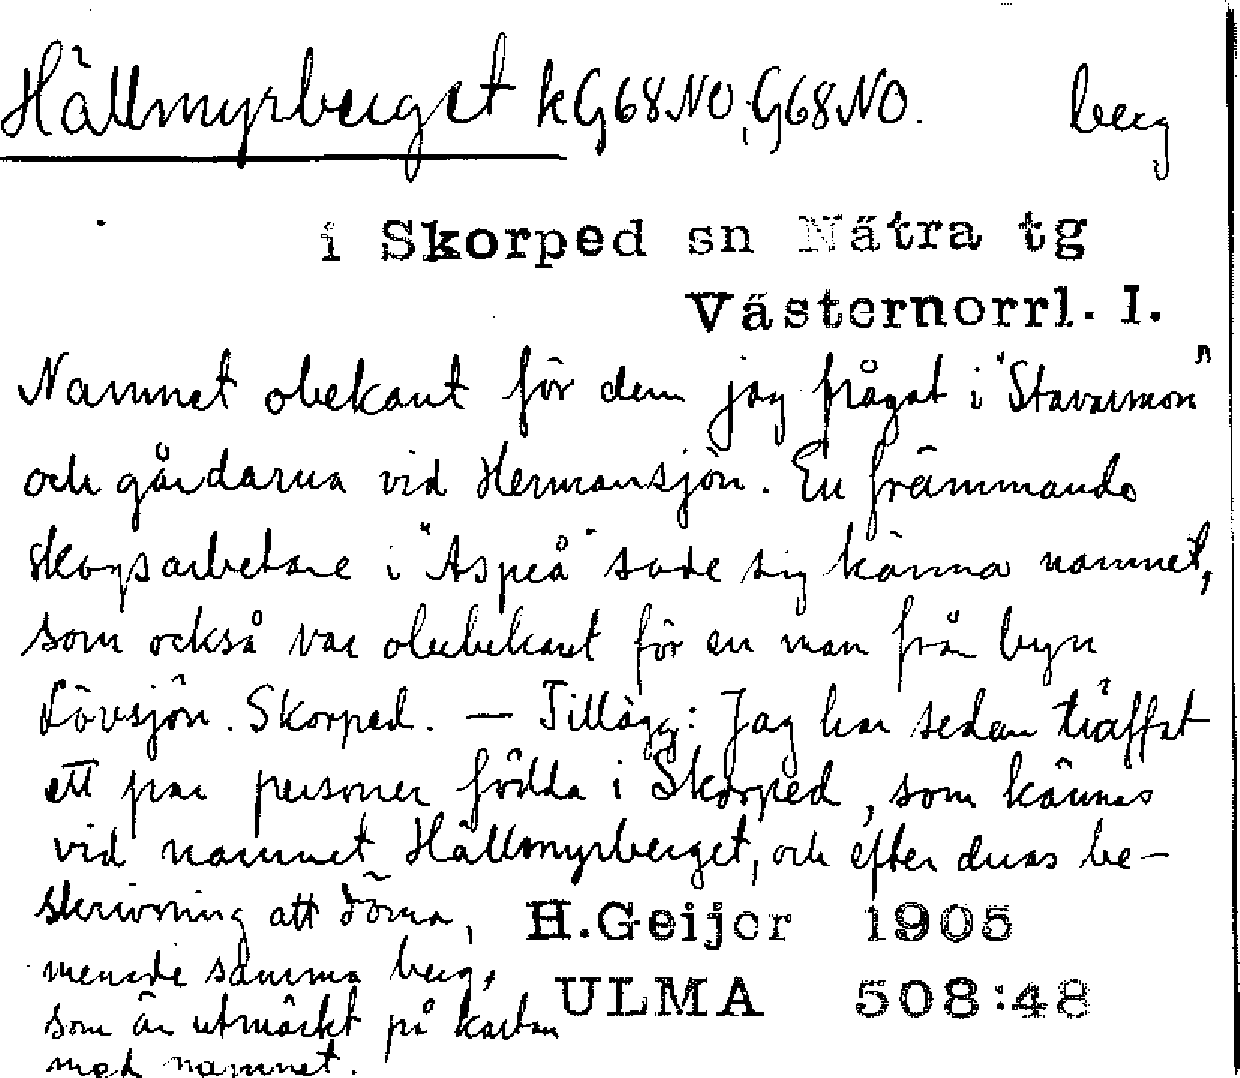 Hällmyrberget kG68NO, G68NO. berg
i Skorped sn Nätra tg
Västernorrl. l.
Namnet obekant för dem jag frågat i "Stavarmon"
och gårdarna vid Hermansjön. En främmande
skogsarbetare i "Aspeå" sade sig känna namnet,
som också var obebekant för en man från byn
Lövsjön. Skorped. — Tillägg: Jag har sedan träffat
ett par personer födda i Skorped, som kännas
vid namnet Hällmyrberget, och efter deras be-
skrivning att döma,
menade samma berg,
som är utmärkt på kartan
med namnet.
H.Geijer 1905
ULMA 508:48